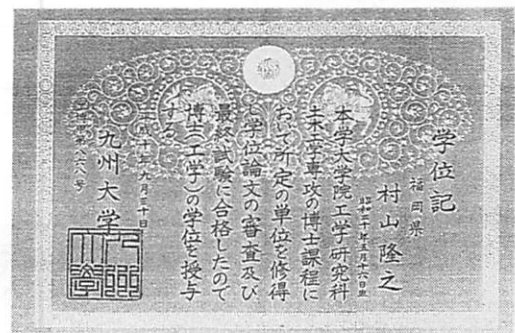 学位記
福岡県
村山隆之
本学大学院工学研究科
土木工学専攻の博士課程に
おいて所定の単位を修得
し学位論文の審査及び
最終試験に合格したので
博士(工学)の学位を授与
する
平成十年九月三十日
九州大学